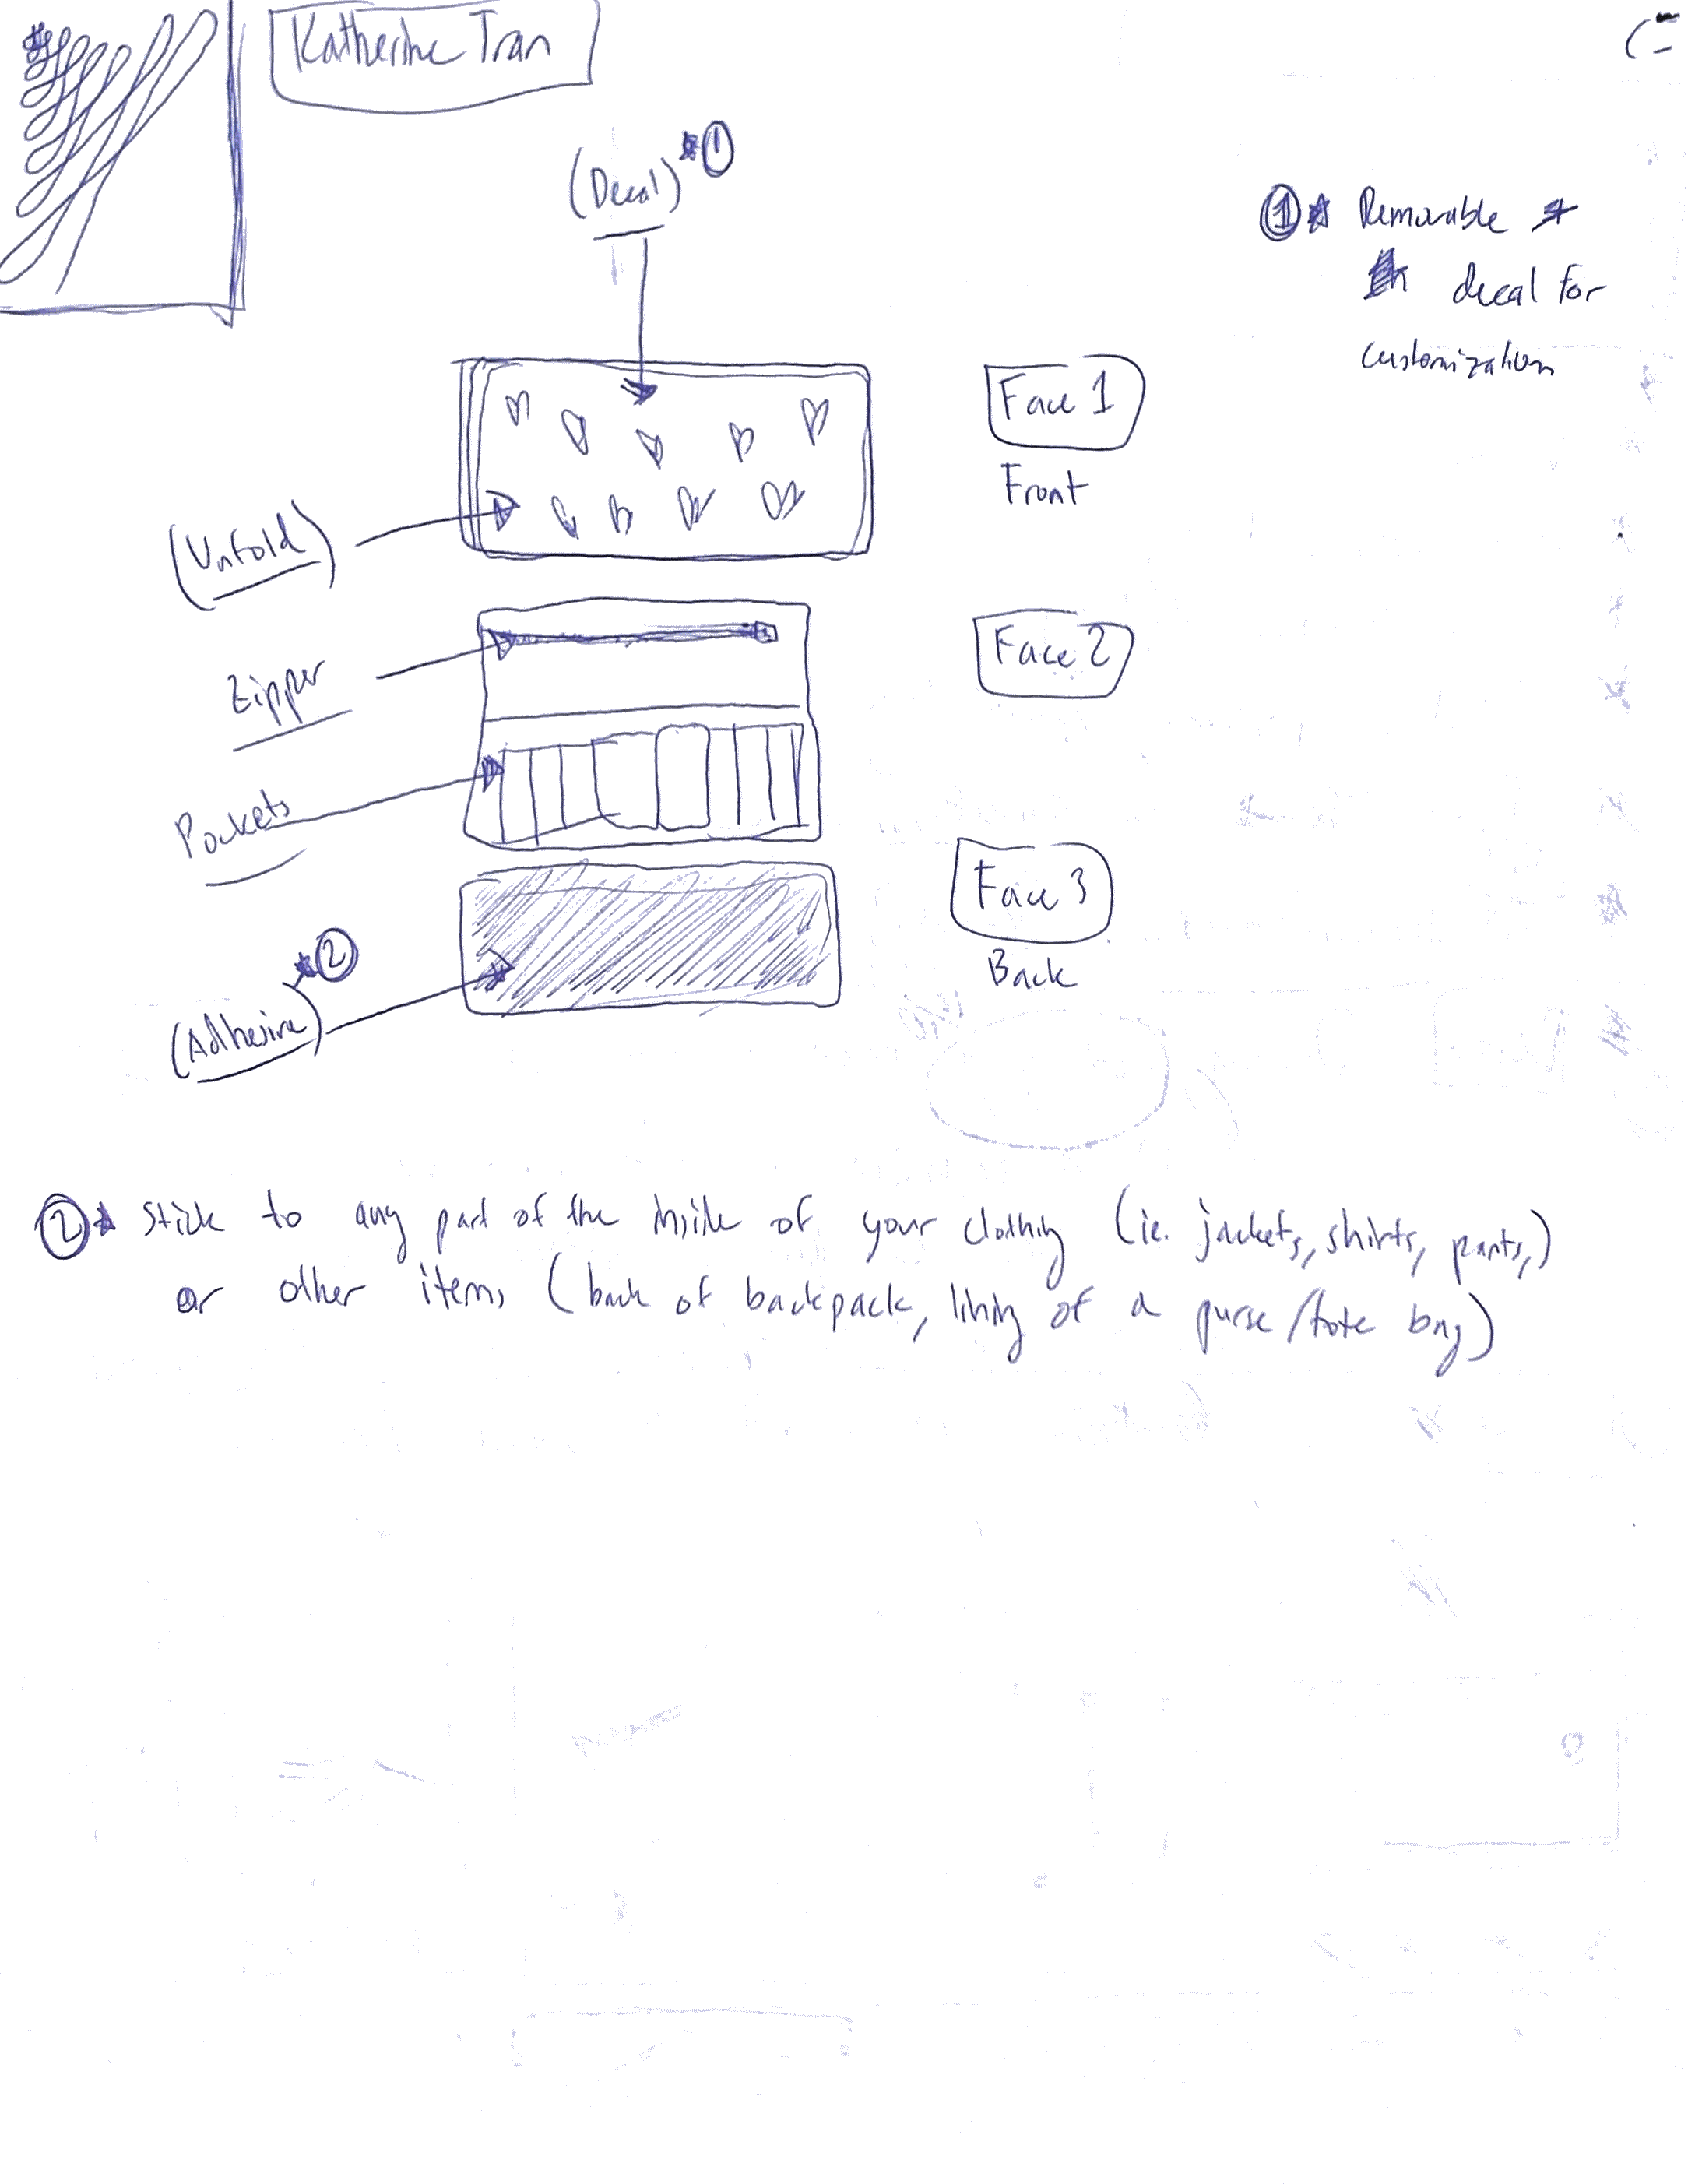 Katherine Tran
(Decal)*①
①* Removable
decal for
customization
Face 1
Front
(Unfold)
Face 2
Zipper
Pockets
Face 3
Back
*②
(Adhesive)
②* stick to any part of the inside of your clothing (ie. jackets, shirts, pants,)
or other items (back of backpack, lining of a purse/tote bag)